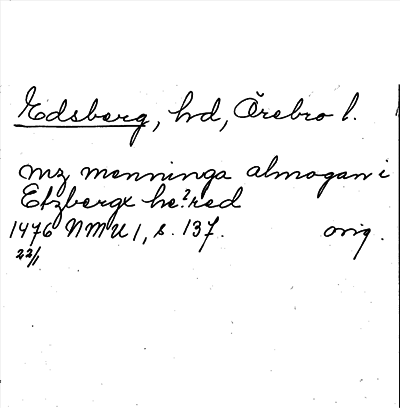 Edsberg, hd, Örebro l.
mz menninga almogan i
Etzbergx he?red
1476 NMU 1, s. 137. orig.
22/1